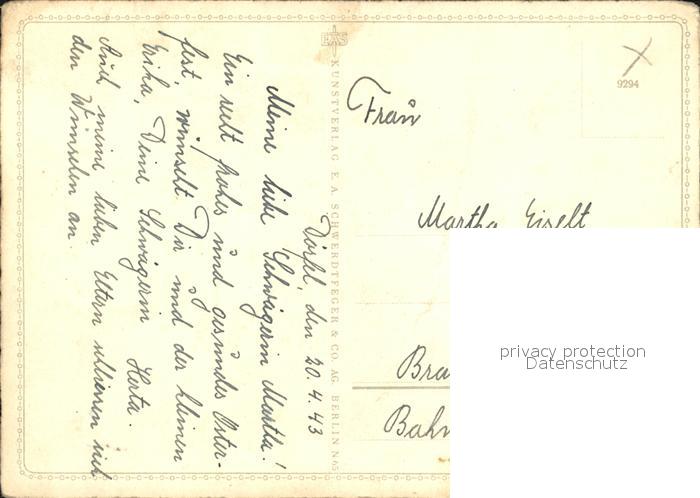 Dörfel, den 20.4.43
Meine liebe Schwägerin Martha!
Ein recht frohes und gesundes Oster-
fest, wünscht Dir und der kleinen
Erika, Deine Schwägerin Herta.
Auch meine lieben Eltern schliessen sich
den Wünschen an.
EAS
KUNSTVERLAG E. A. SCHWERDTFEGER & CO. AG. BERLIN N 65
9294
Frau
Martha Eiselt
Bra
Bahn
privacy protection
Datenschutz